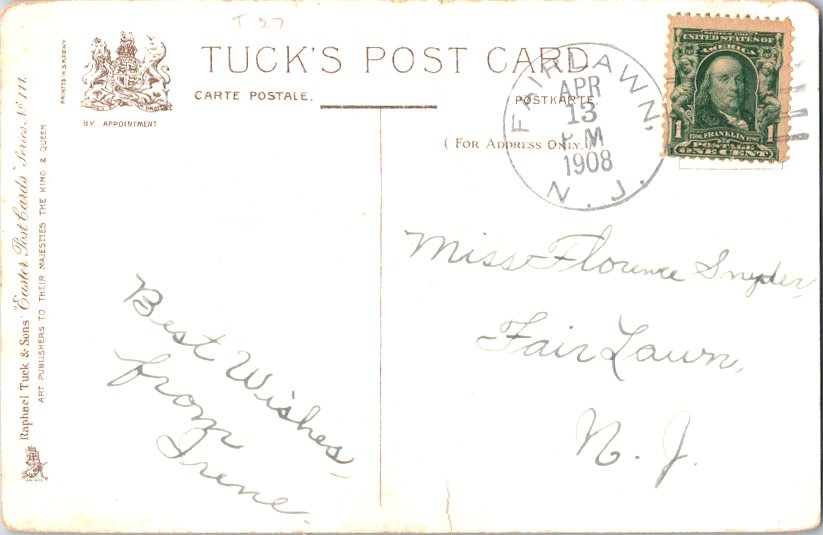 T 27
TUCK'S POST CARD
CARTE POSTALE.
POSTKARTE
BY APPOINTMENT
PRINTED IN SAXONY
( For Address Only. )
Raphael Tuck & Sons' "Easter Post Cards" Series No 111.
ART PUBLISHERS TO THEIR MAJESTIES THE KING & QUEEN
FAIRLAWN,
APR
13
PM
1908
N. J.
UNITED STATES OF
AMERICA
1 FRANKLIN 1
POSTAGE
ONE CENT
Best Wishes,
from
Irene.
Miss Florence Snyder,
Fair Lawn,
N. J.